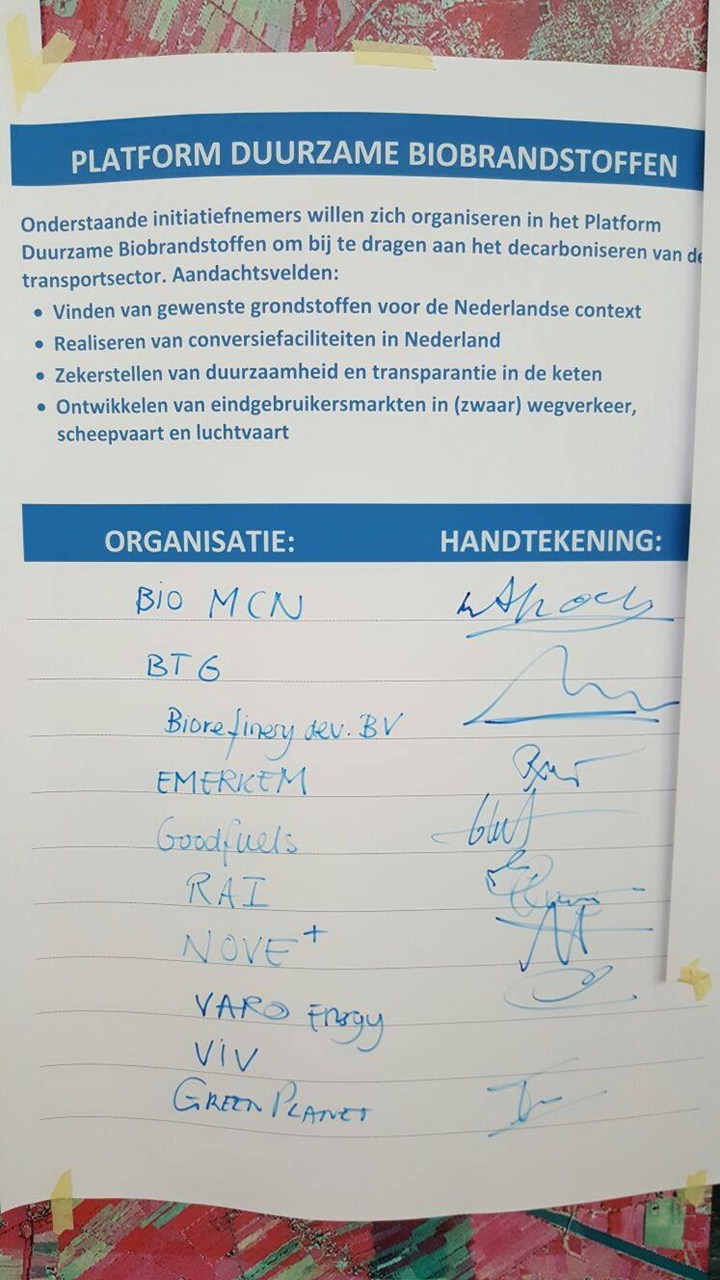 PLATFORM DUURZAME BIOBRANDSTOFFEN
Onderstaande initiatiefnemers willen zich organiseren in het Platform
Duurzame Biobrandstoffen om bij te dragen aan het decarboniseren van de
transportsector. Aandachtsvelden:
• Vinden van gewenste grondstoffen voor de Nederlandse context
• Realiseren van conversiefaciliteiten in Nederland
• Zekerstellen van duurzaamheid en transparantie in de keten
• Ontwikkelen van eindgebruikersmarkten in (zwaar) wegverkeer,
scheepvaart en luchtvaart
ORGANISATIE: HANDTEKENING:
BIO MCN
BTG
Biorefinery dev. BV
EMERKEM
Goodfuels
RAI
NOVE+
VARO Energy
VIV
GREEN PLANET